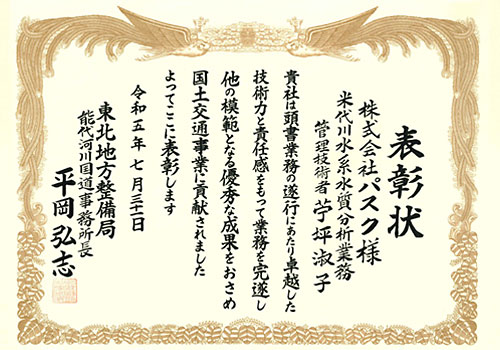 表彰状
株式会社パスク様
米代川水系水質分析業務
管理技術者 苧坪淑子
貴社は頭書業務の遂行にあたり卓越した
技術力と責任感をもって業務を完遂し
他の模範となる優秀な成果をおさめ
国土交通事業に貢献されました
よってここに表彰します
令和五年七月三十一日
東北地方整備局
能代河川国道事務所長
平岡弘志